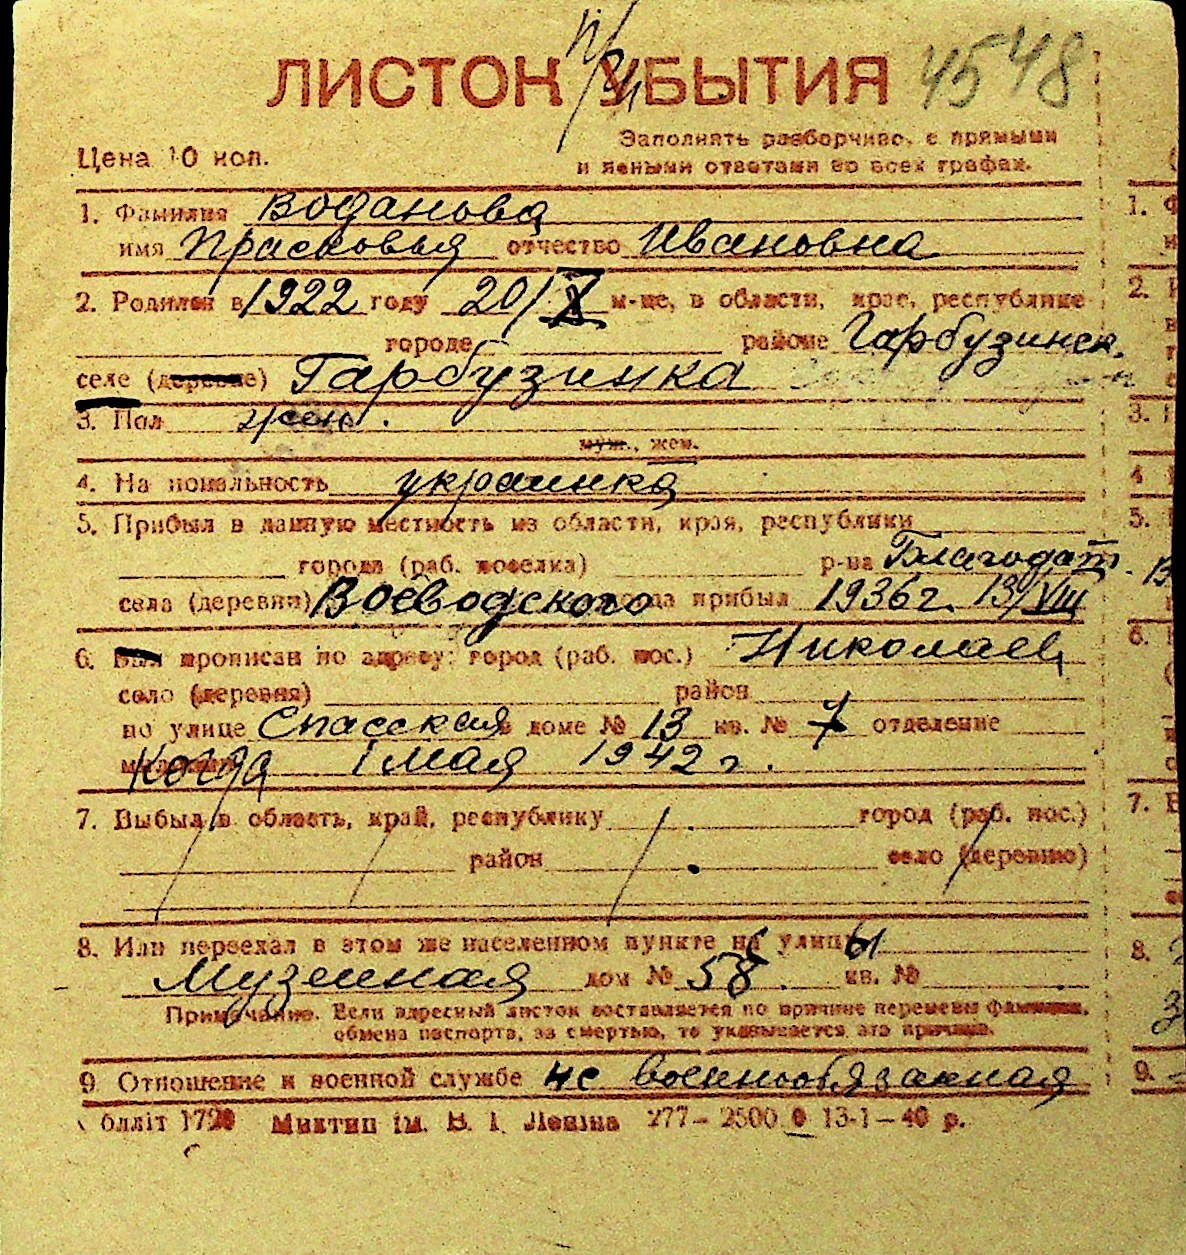 ЛИСТОК УБЫТИЯ 4548
Цена 10 коп.
Заполнять разборчиво, с прямыми
и ясными ответами во всех графах.
1. Фамилия Воданова
имя Прасковья отчество Ивановна
2. Родился в 1922 году 20/X м-це, в области, крае, республике
городе районе Гарбузинск.
селе (деревне) Гарбузинка
3. Пол жен.
муж., жен.
4. Национальность украинка
5. Прибыл в данную местность из области, края, республики
города (раб. поселка) р-на Благодат.
села (деревни) Воеводского когда прибыл 1936 г. 13/VIII
6. Был прописан по адресу: город (раб. пос.) Николаев
село (деревня) район
по улице Спасская в доме № 13 кв. № 7 отделение
Когда 1 мая 1942 г.
7. Выбыл в область, край, республику город (раб. пос.)
район село (деревню)
8. Или переехал в этом же населенном пункте на улицу
Музейная дом № 58 кв. №
Примечание. Если адресный листок составляется по причине перемены фамилии,
обмена паспорта, за смертью, то указывается эта причина.
9. Отношение к военной службе не военнообязанная
обліт 1720 Миктип ім. В. І. Леніна 277–2500 13-1–40 р.
1.
2.
3.
4
5.
6.
7.
8.
9.